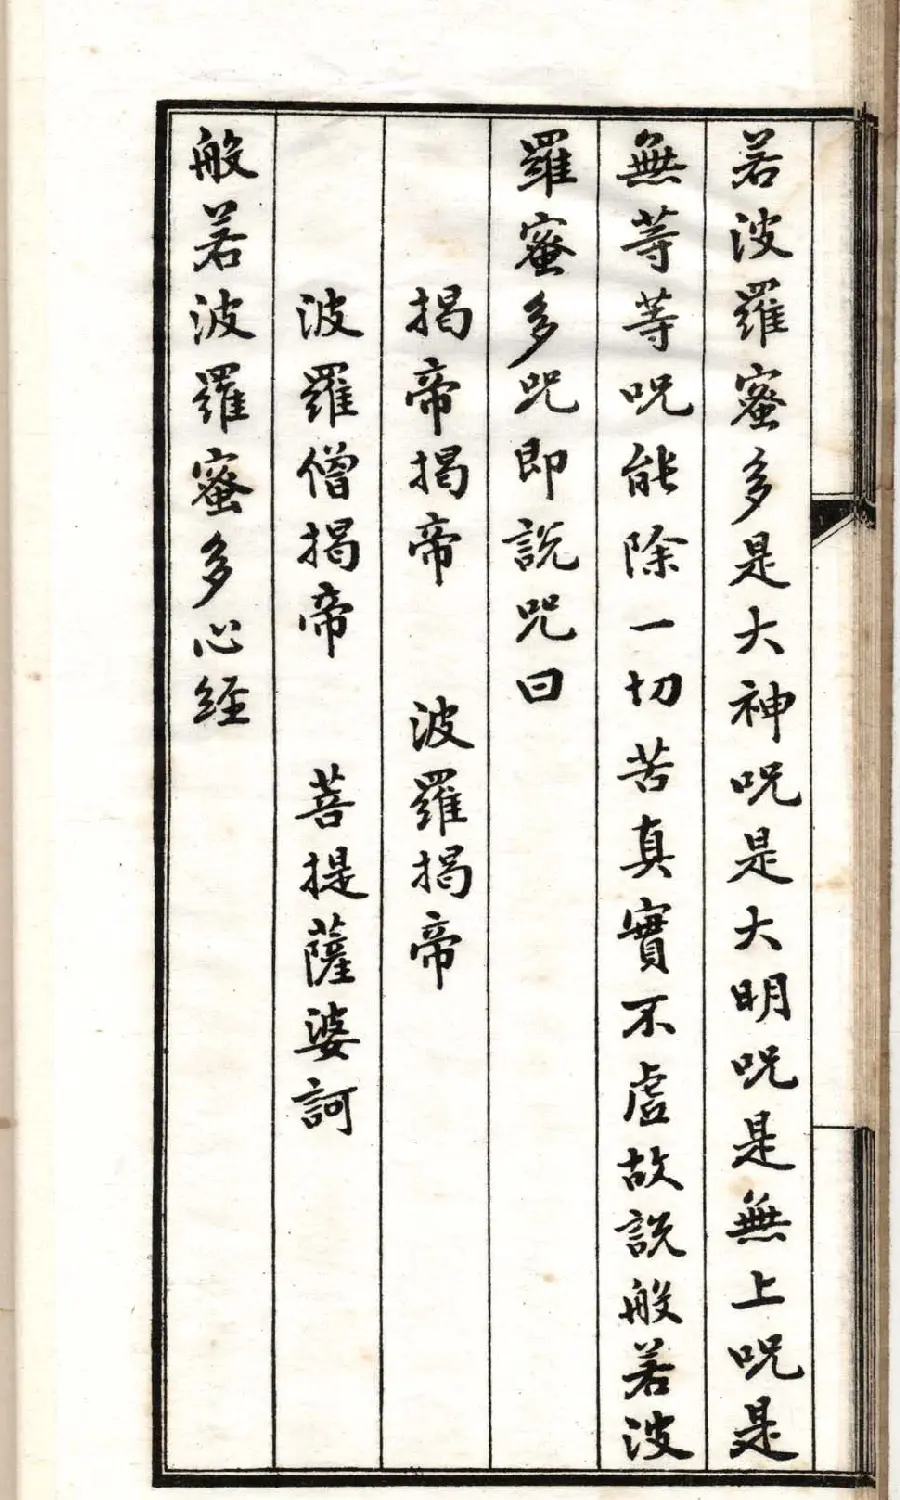 若波羅蜜多是大神咒是大明咒是無上咒是
無等等咒能除一切苦真實不虛故說般若波
羅蜜多咒即說咒曰
揭帝揭帝 波羅揭帝
波羅僧揭帝 菩提薩婆訶
般若波羅蜜多心経